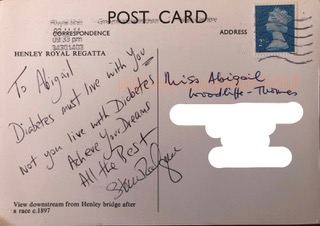 POST CARD
CORRESPONDENCE
ADDRESS
HENLEY ROYAL REGATTA
To Abigail
Diabetes must live with you
Not you live with Diabetes
Achieve Your Dreams
All the Best
Miss Abigail
Woodliffe-Thomas
View downstream from Henley bridge after
a race c.1897